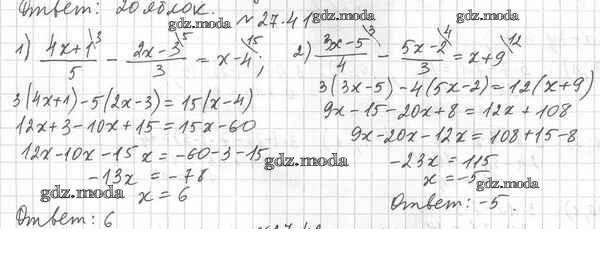 Ответ: 20 яблок.
gdz.moda № 27.41 gdz.moda
1) (4x+1)/5 \3 - (2x-3)/3 \5 = x-4 \15;
3(4x+1)-5(2x-3)=15(x-4)
12x+3-10x+15=15x-60
12x-10x-15x=-60-3-15
gdz.moda
-13x = -78
gdz.moda
x = 6
Ответ: 6
2) (3x-5)/4 \3 - (5x-2)/3 \4 = x+9 \12
3(3x-5)-4(5x-2)=12(x+9)
9x-15-20x+8=12x+108
9x-20x-12x=108+15-8
-23x = 115
x = -5
gdz.moda
Ответ: -5.